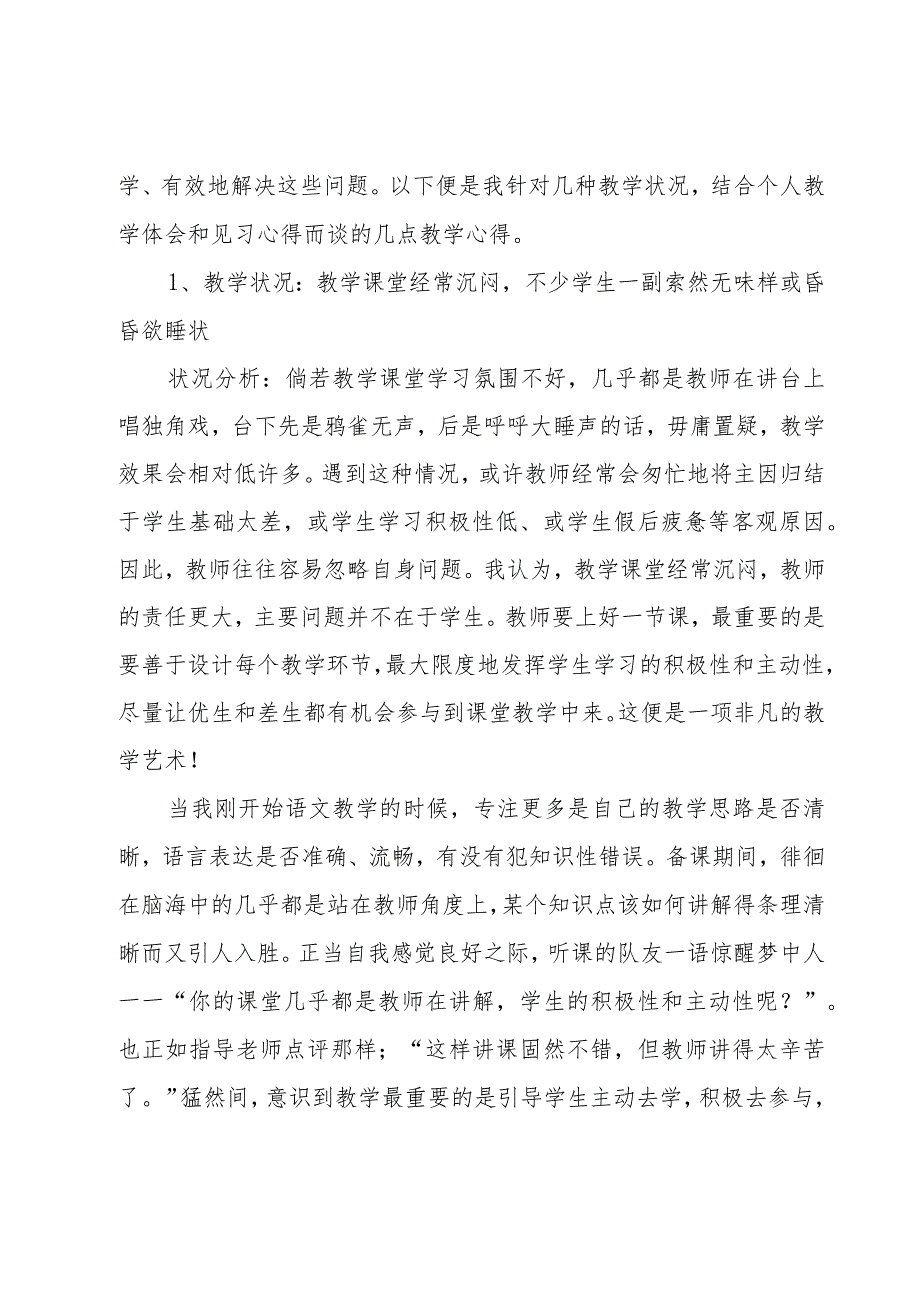 学、有效地解决这些问题。以下便是我针对几种教学状况，结合个人教
学体会和见习心得而谈的几点教学心得。
1、教学状况：教学课堂经常沉闷，不少学生一副索然无味样或昏
昏欲睡状
状况分析：倘若教学课堂学习氛围不好，几乎都是教师在讲台上
唱独角戏，台下先是鸦雀无声，后是呼呼大睡声的话，毋庸置疑，教学
效果会相对低许多。遇到这种情况，或许教师经常会匆忙地将主因归结
于学生基础太差，或学生学习积极性低、或学生假后疲惫等客观原因。
因此，教师往往容易忽略自身问题。我认为，教学课堂经常沉闷，教师
的责任更大，主要问题并不在于学生。教师要上好一节课，最重要的是
要善于设计每个教学环节，最大限度地发挥学生学习的积极性和主动性，
尽量让优生和差生都有机会参与到课堂教学中来。这便是一项非凡的教
学艺术！
当我刚开始语文教学的时候，专注更多是自己的教学思路是否清
晰，语言表达是否准确、流畅，有没有犯知识性错误。备课期间，徘徊
在脑海中的几乎都是站在教师角度上，某个知识点该如何讲解得条理清
晰而又引人入胜。正当自我感觉良好之际，听课的队友一语惊醒梦中人
一一“你的课堂几乎都是教师在讲解，学生的积极性和主动性呢？”。
也正如指导老师点评那样；“这样讲课固然不错，但教师讲得太辛苦
了。”猛然间，意识到教学最重要的是引导学生主动去学，积极去参与，